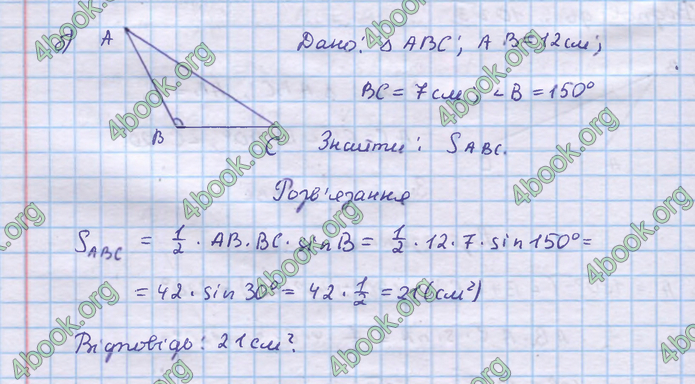 б) A Дано: △ ABC; AB = 12 см;
BC = 7 см; ∠B = 150°
B C Знайти: S ABC.
Розв'язання
S ABC = 1/2 · AB · BC · sin B = 1/2 · 12 · 7 · sin 150° =
= 42 · sin 30° = 42 · 1/2 = 21 (см²)
Відповідь: 21 см².
4book.org
4book.org
4book.org
4book.org
4book.org
4book.org
4book.org
4book.org
4book.org
4book.org
4book.org
4book.org